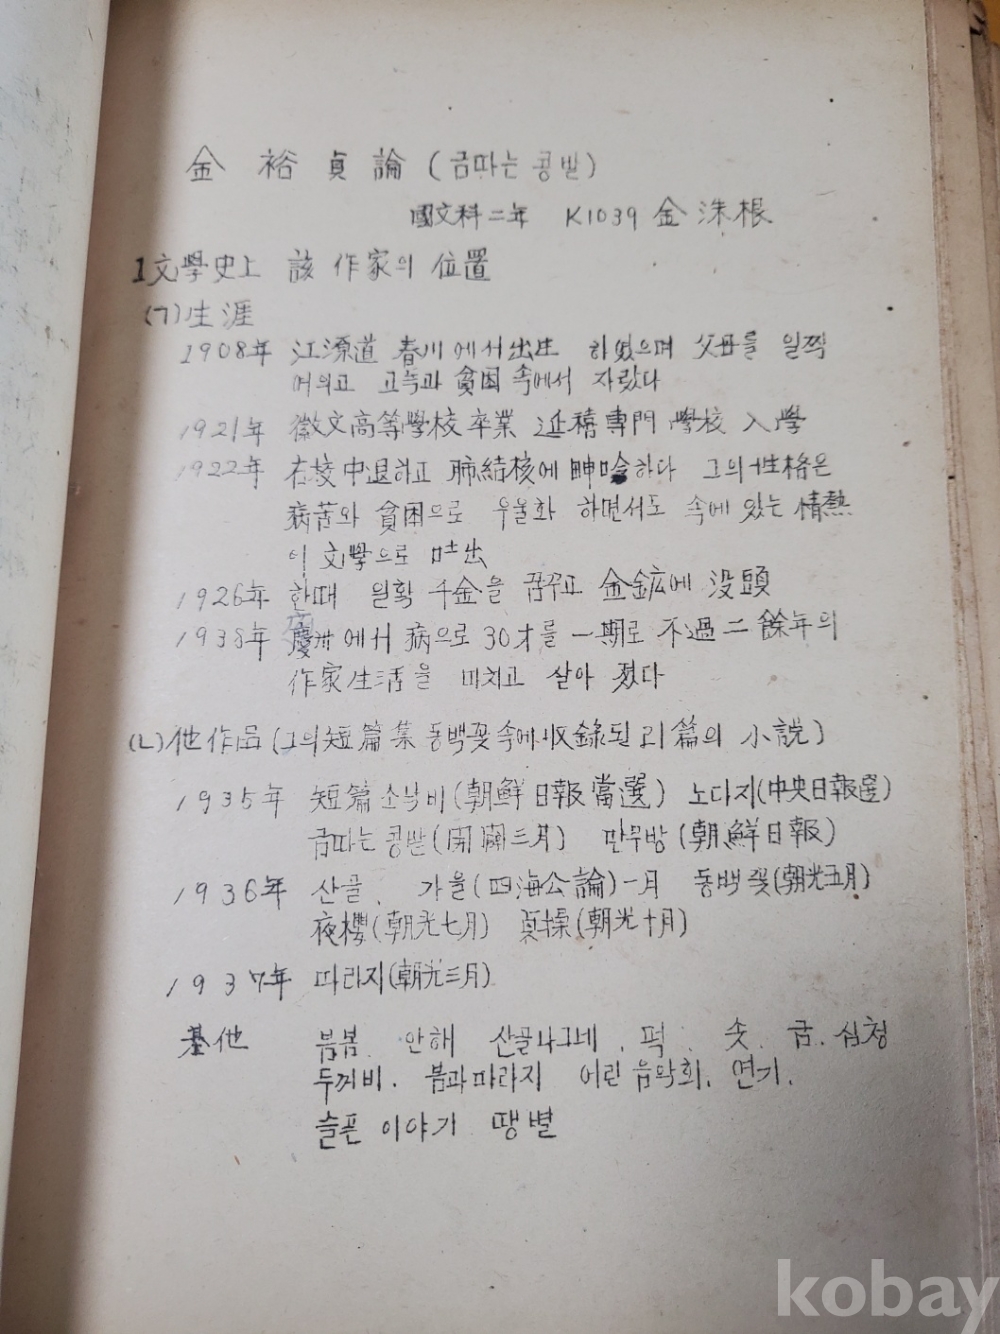 金裕貞論 (금따는 콩밭)
國文科 二年 K1039 金洙根
I 文學史上 該 作家의 位置
(ㄱ)生涯
1908年 江源道 春川에서 出生 하였으며 父母를 일찍
여의고 고독과 貧困 속에서 자랐다
1921年 徽文高等學校 卒業 延禧專門 學校 入學
1922年 在校中退하고 肺結核에 呻吟하다 그의 性格은
病苦와 貧困으로 우울화 하면서도 속에 있는 情熱
이 文學으로 吐出
1926年 한때 일확 千金을 꿈꾸고 金鉱에 没頭
1938年 에서 病으로 30才를 一期로 不過 二 餘年의
作家生活을 마치고 살아 졌다
(ㄴ)他作品 (그의 短篇集 동백꽃 속에 收錄된 21篇의 小説)
1935年 短篇 소낙비(朝鮮日報當選) 노다지(中央日報選)
금따는 콩밭(開闢三月) 만무방(朝鮮日報)
1936年 산골. 가을(四海公論)一月 동백꽃(朝光五月)
夜櫻(朝光七月) 貞操(朝光十月)
1937年 따라지(朝光三月)
基他 봄봄. 안해 산골나그네. 떡. 솟. 금. 심청
두꺼비. 봄과따라지 어린음악회. 연기.
슬픈 이야기 땡볕
kobay